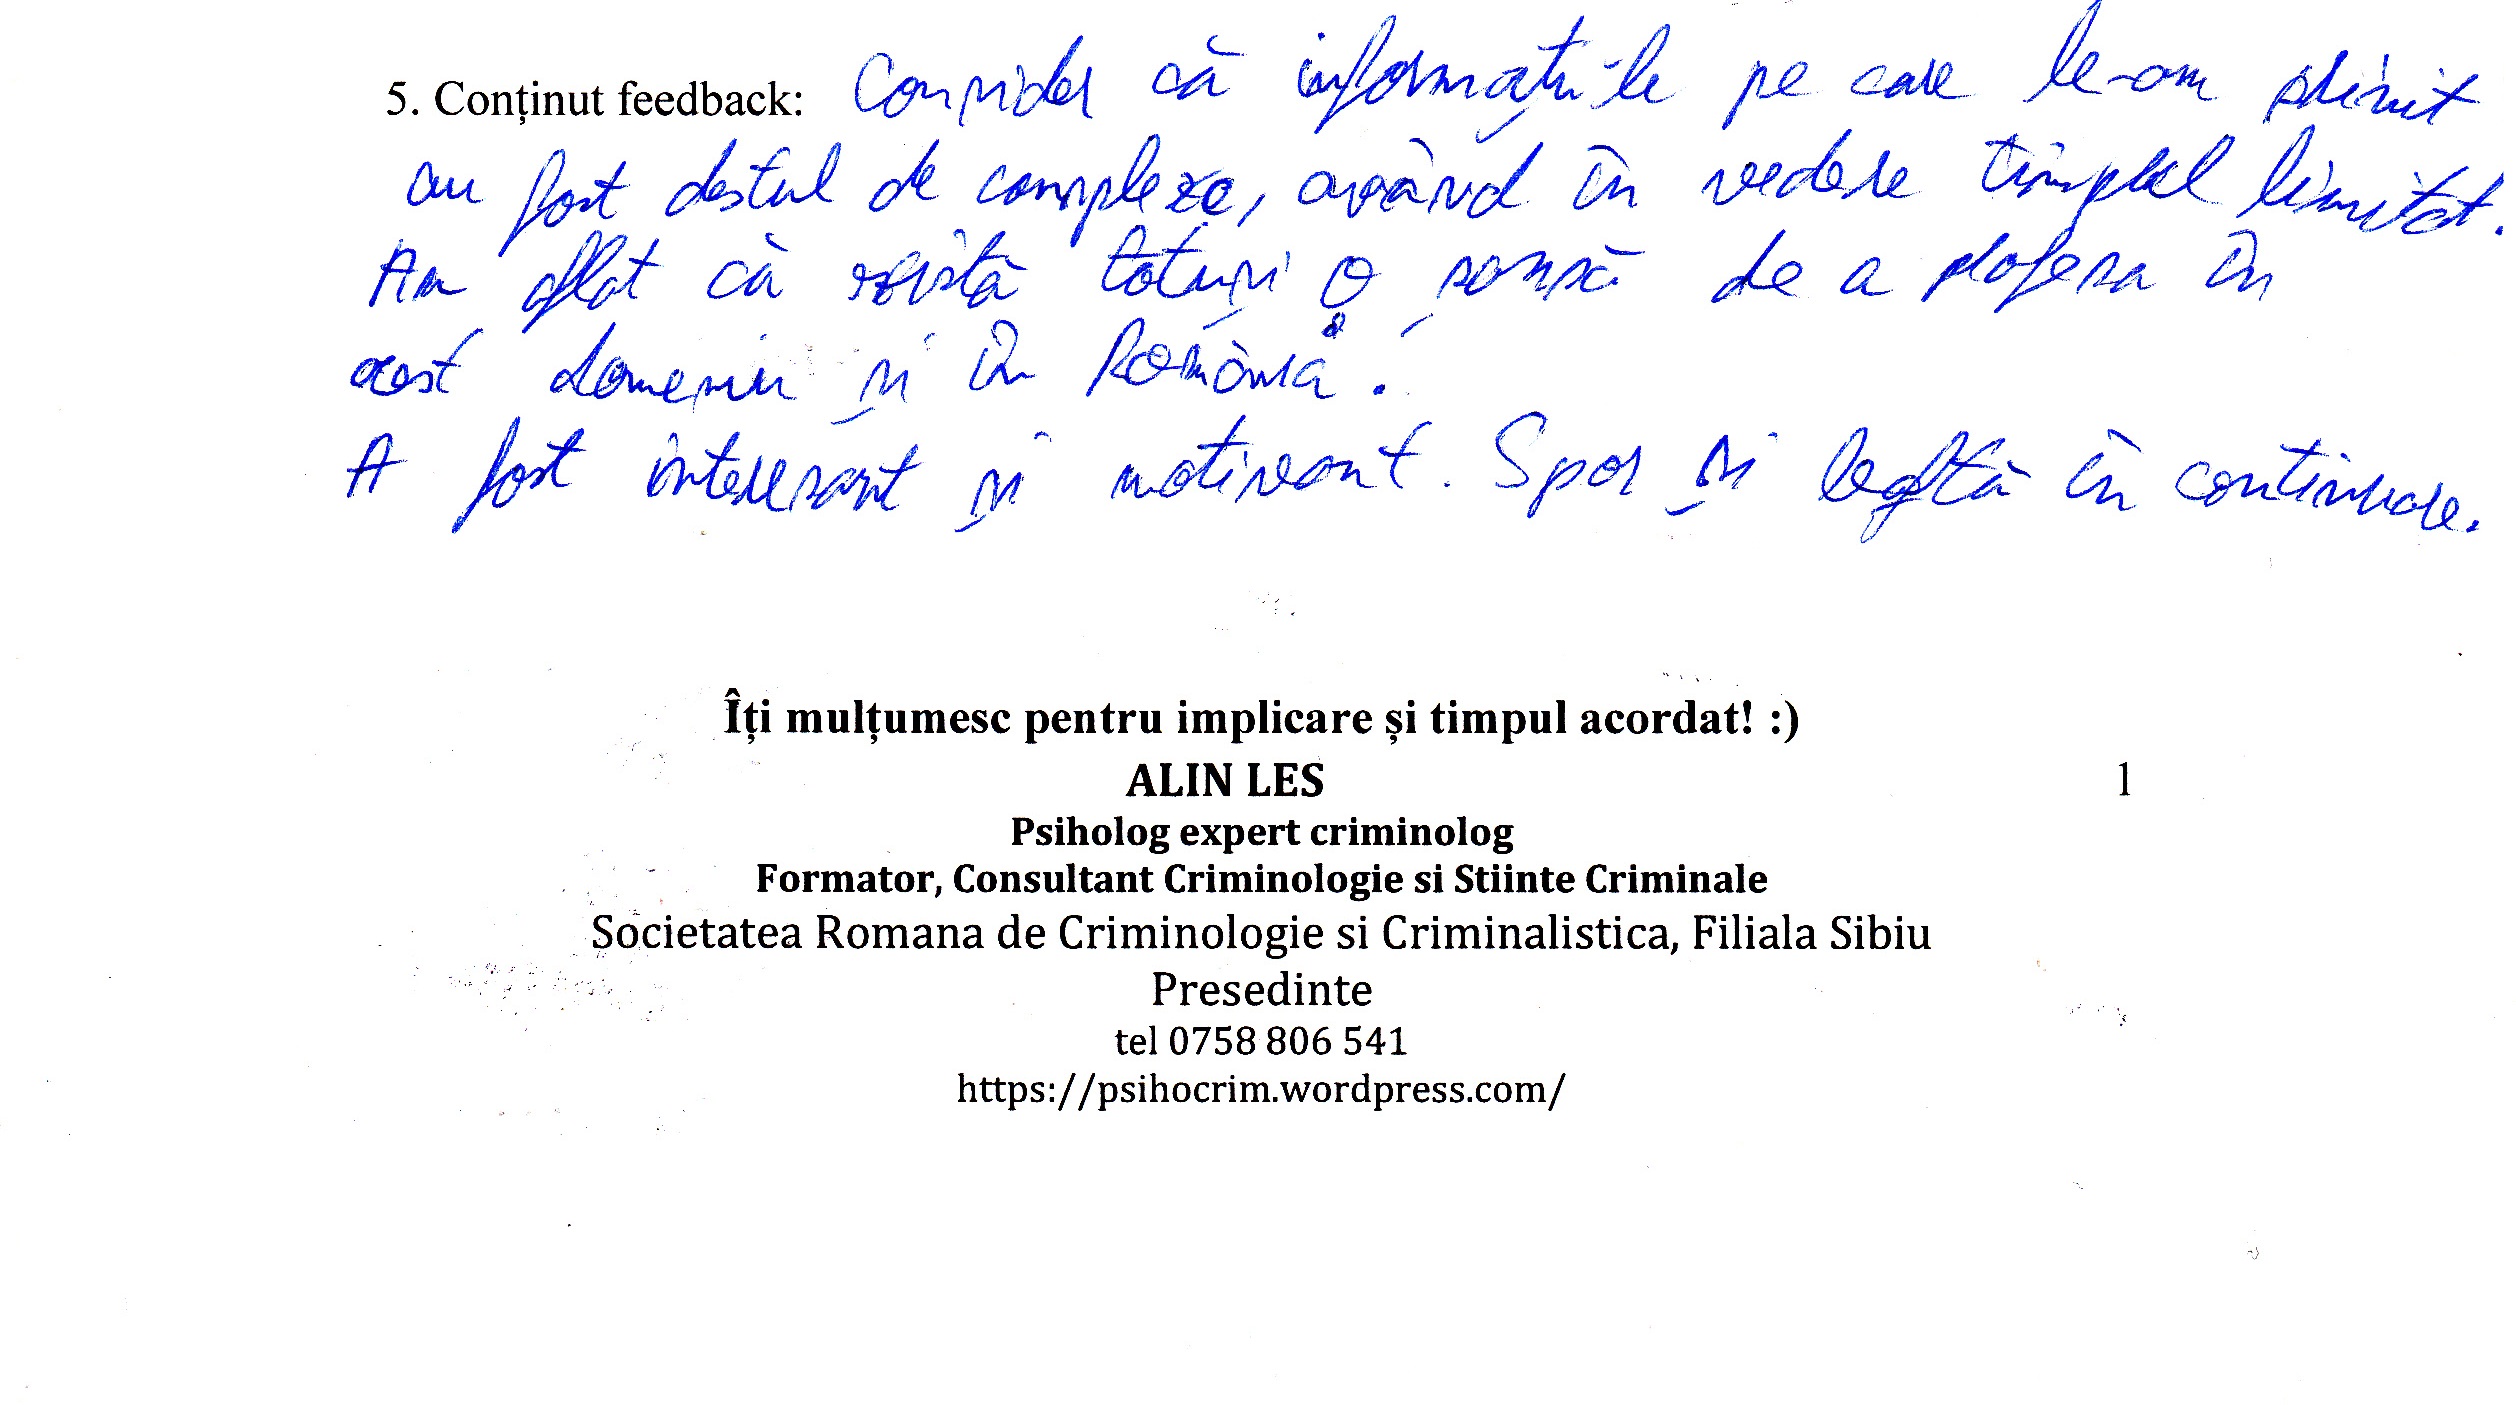 5. Conținut feedback: Consider că informațiile pe care le-am primit
au fost destul de complexe, având în vedere timpul limitat.
Am aflat că există totuși o șansă de a profesa în
acest domeniu și în România.
A fost interesant și motivant. Spor și baftă în continuare.
Îți mulțumesc pentru implicare și timpul acordat! :)
ALIN LES 1
Psiholog expert criminolog
Formator, Consultant Criminologie si Stiinte Criminale
Societatea Romana de Criminologie si Criminalistica, Filiala Sibiu
Presedinte
tel 0758 806 541
https://psihocrim.wordpress.com/